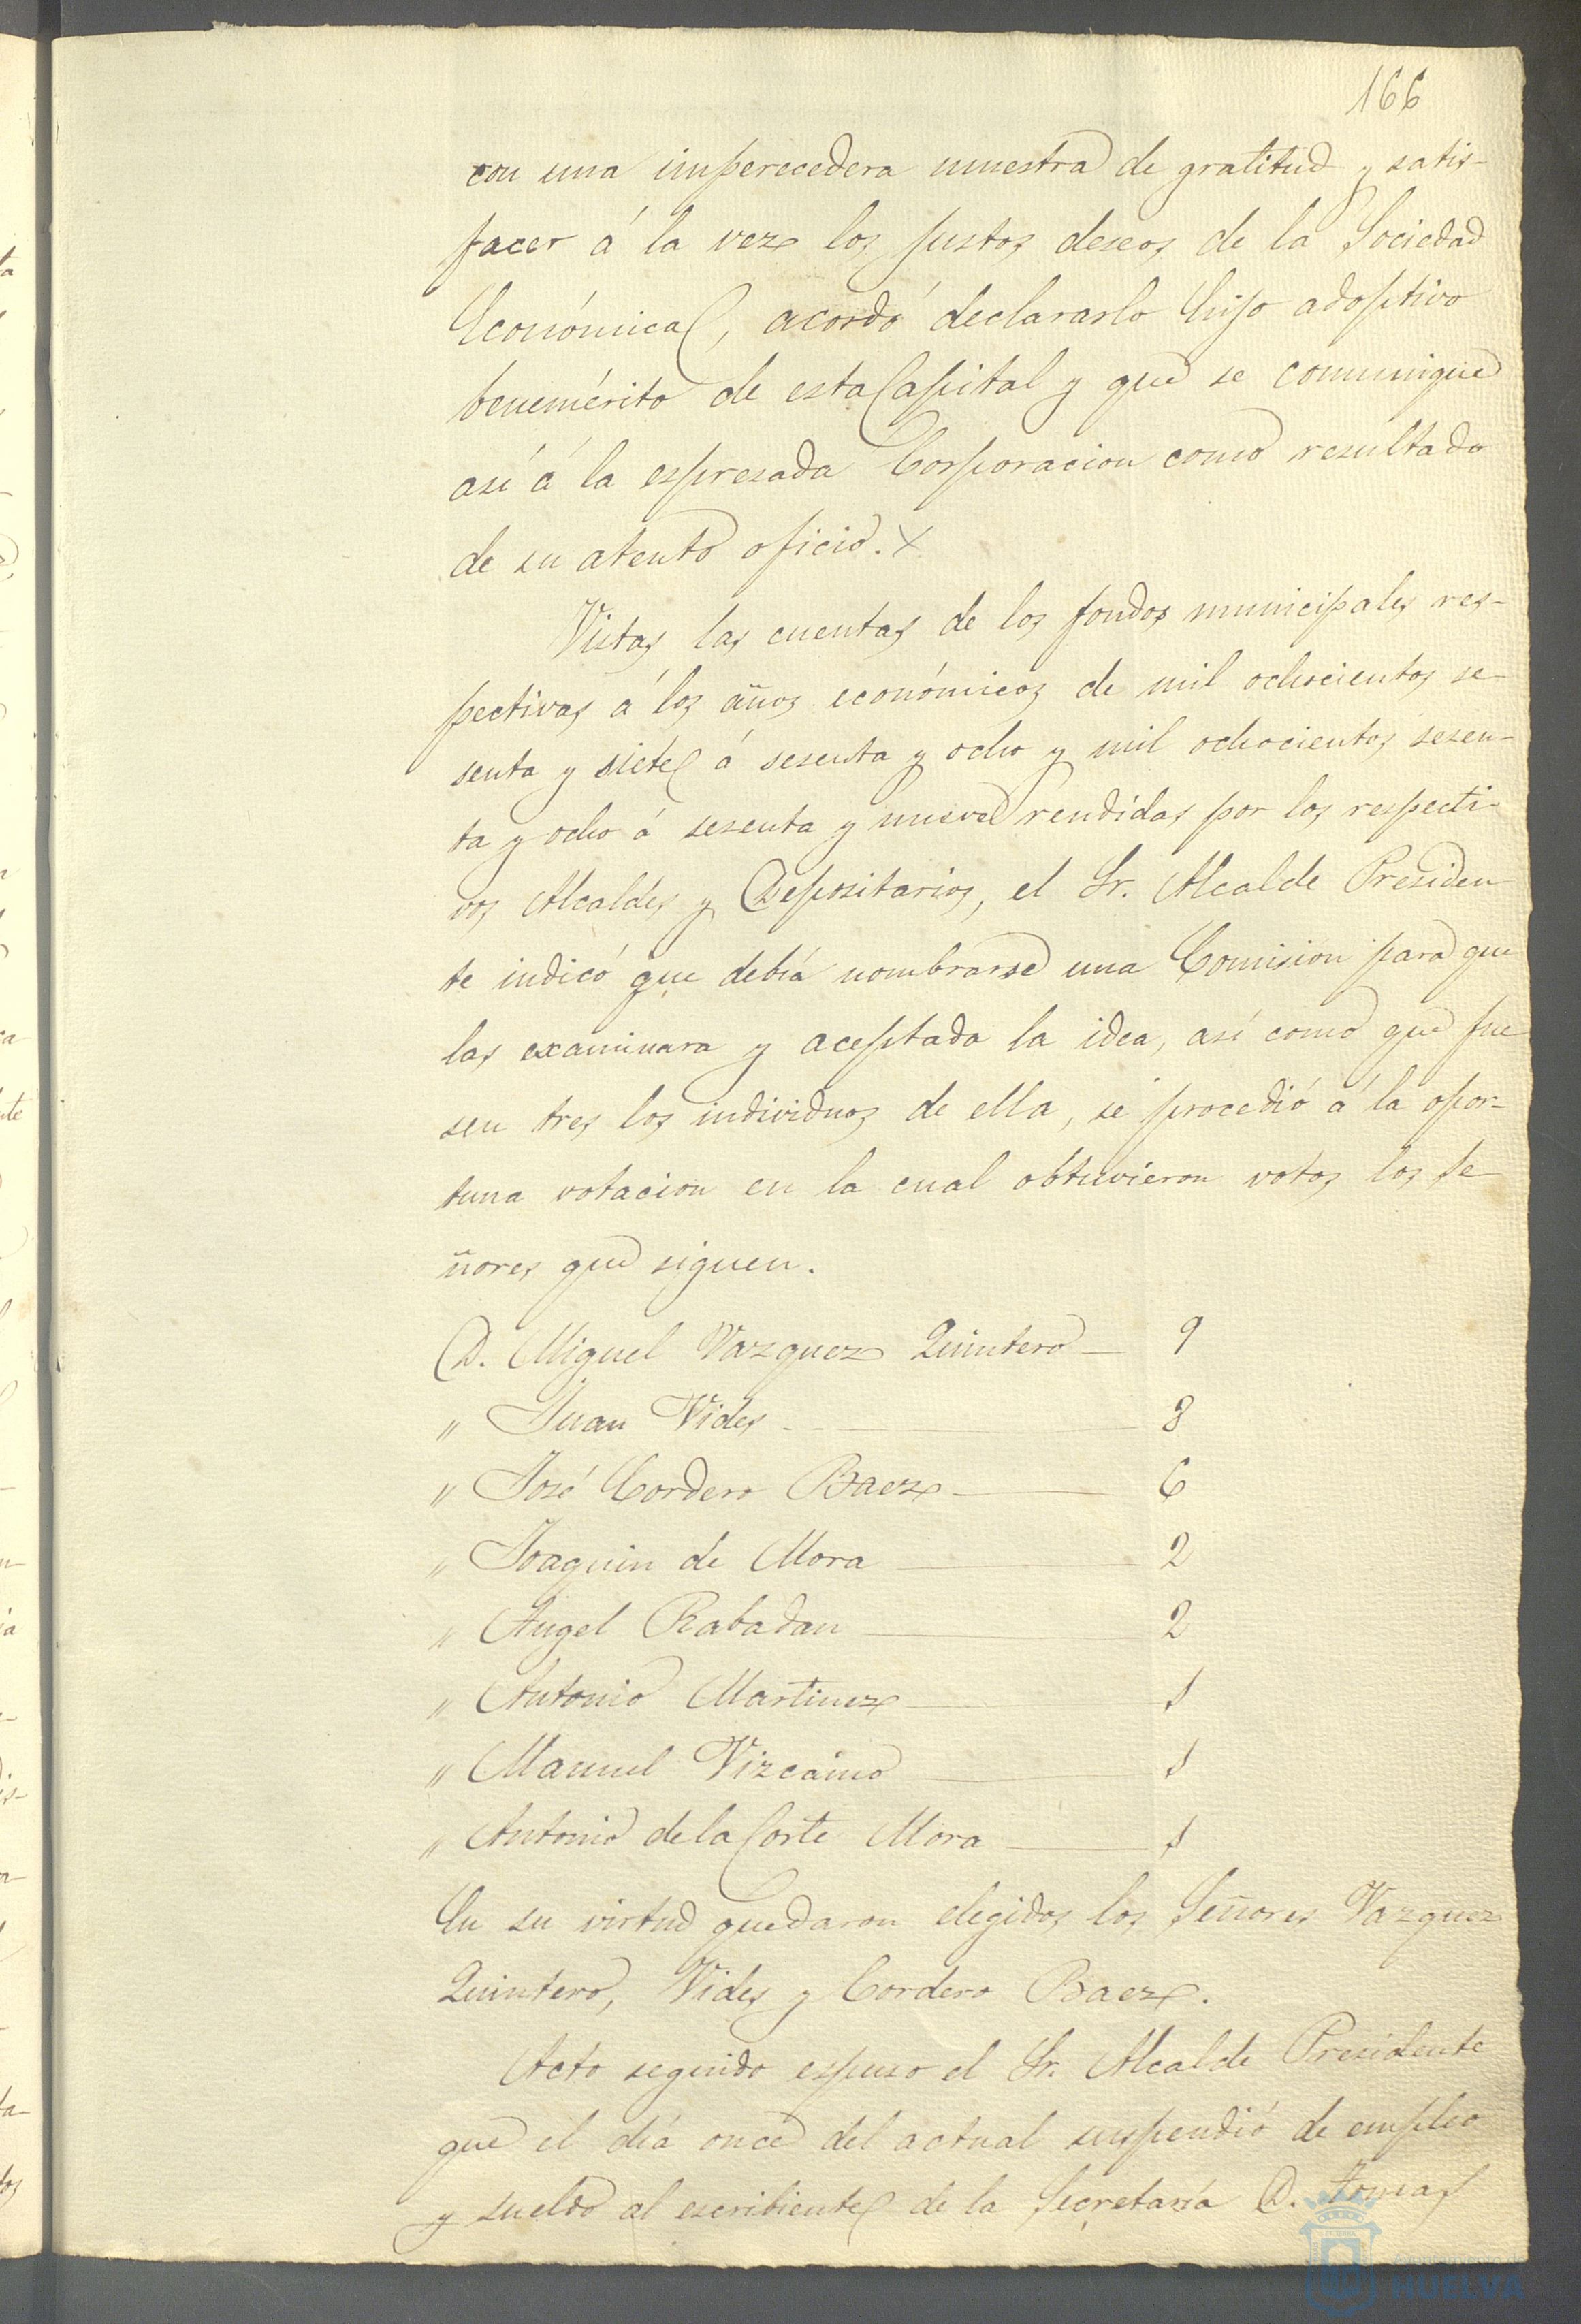 166
con una imperecedera muestra de gratitud y satis-
facer á la vez los justos deseos de la Sociedad
Económica, acordó declararlo hijo adoptivo
benemérito de esta Capital y que se comunique
así á la espresada Corporacion como resultado
de su atento oficio. X
Vistas las cuentas de los fondos municipales res-
pectivas á los años económicos de mil ochocientos se-
senta y siete á sesenta y ocho y mil ochocientos sesen-
ta y ocho á sesenta y nueve rendidas por los respecti-
vos Alcaldes y Depositarios, el Sr. Alcalde Presiden-
te indicó que debía nombrarse una Comision para que
las examinara y aceptada la idea, así como que fue
sen tres los individuos de ella, se procedió á la opor-
tuna votacion en la cual obtuvieron votos los Se-
ñores que siguen.
D. Miguel Vazquez Quintero — 9
" Juan Vides — 8
" José Cordero Baez — 6
" Joaquin de Mora — 2
" Angel Rabadan — 2
" Antonio Martinez — 1
" Manuel Vizcaino — 1
" Antonio de la Corte Mora — 1
En su virtud quedaron elegidos los Señores Vazquez
Quintero, Vides y Cordero Baez.
Acto seguido espuso el Sr. Alcalde Presidente
que el día once del actual suspendió de empleo
y sueldo al escribiente de la Secretaría D. Tomas
HUELVA